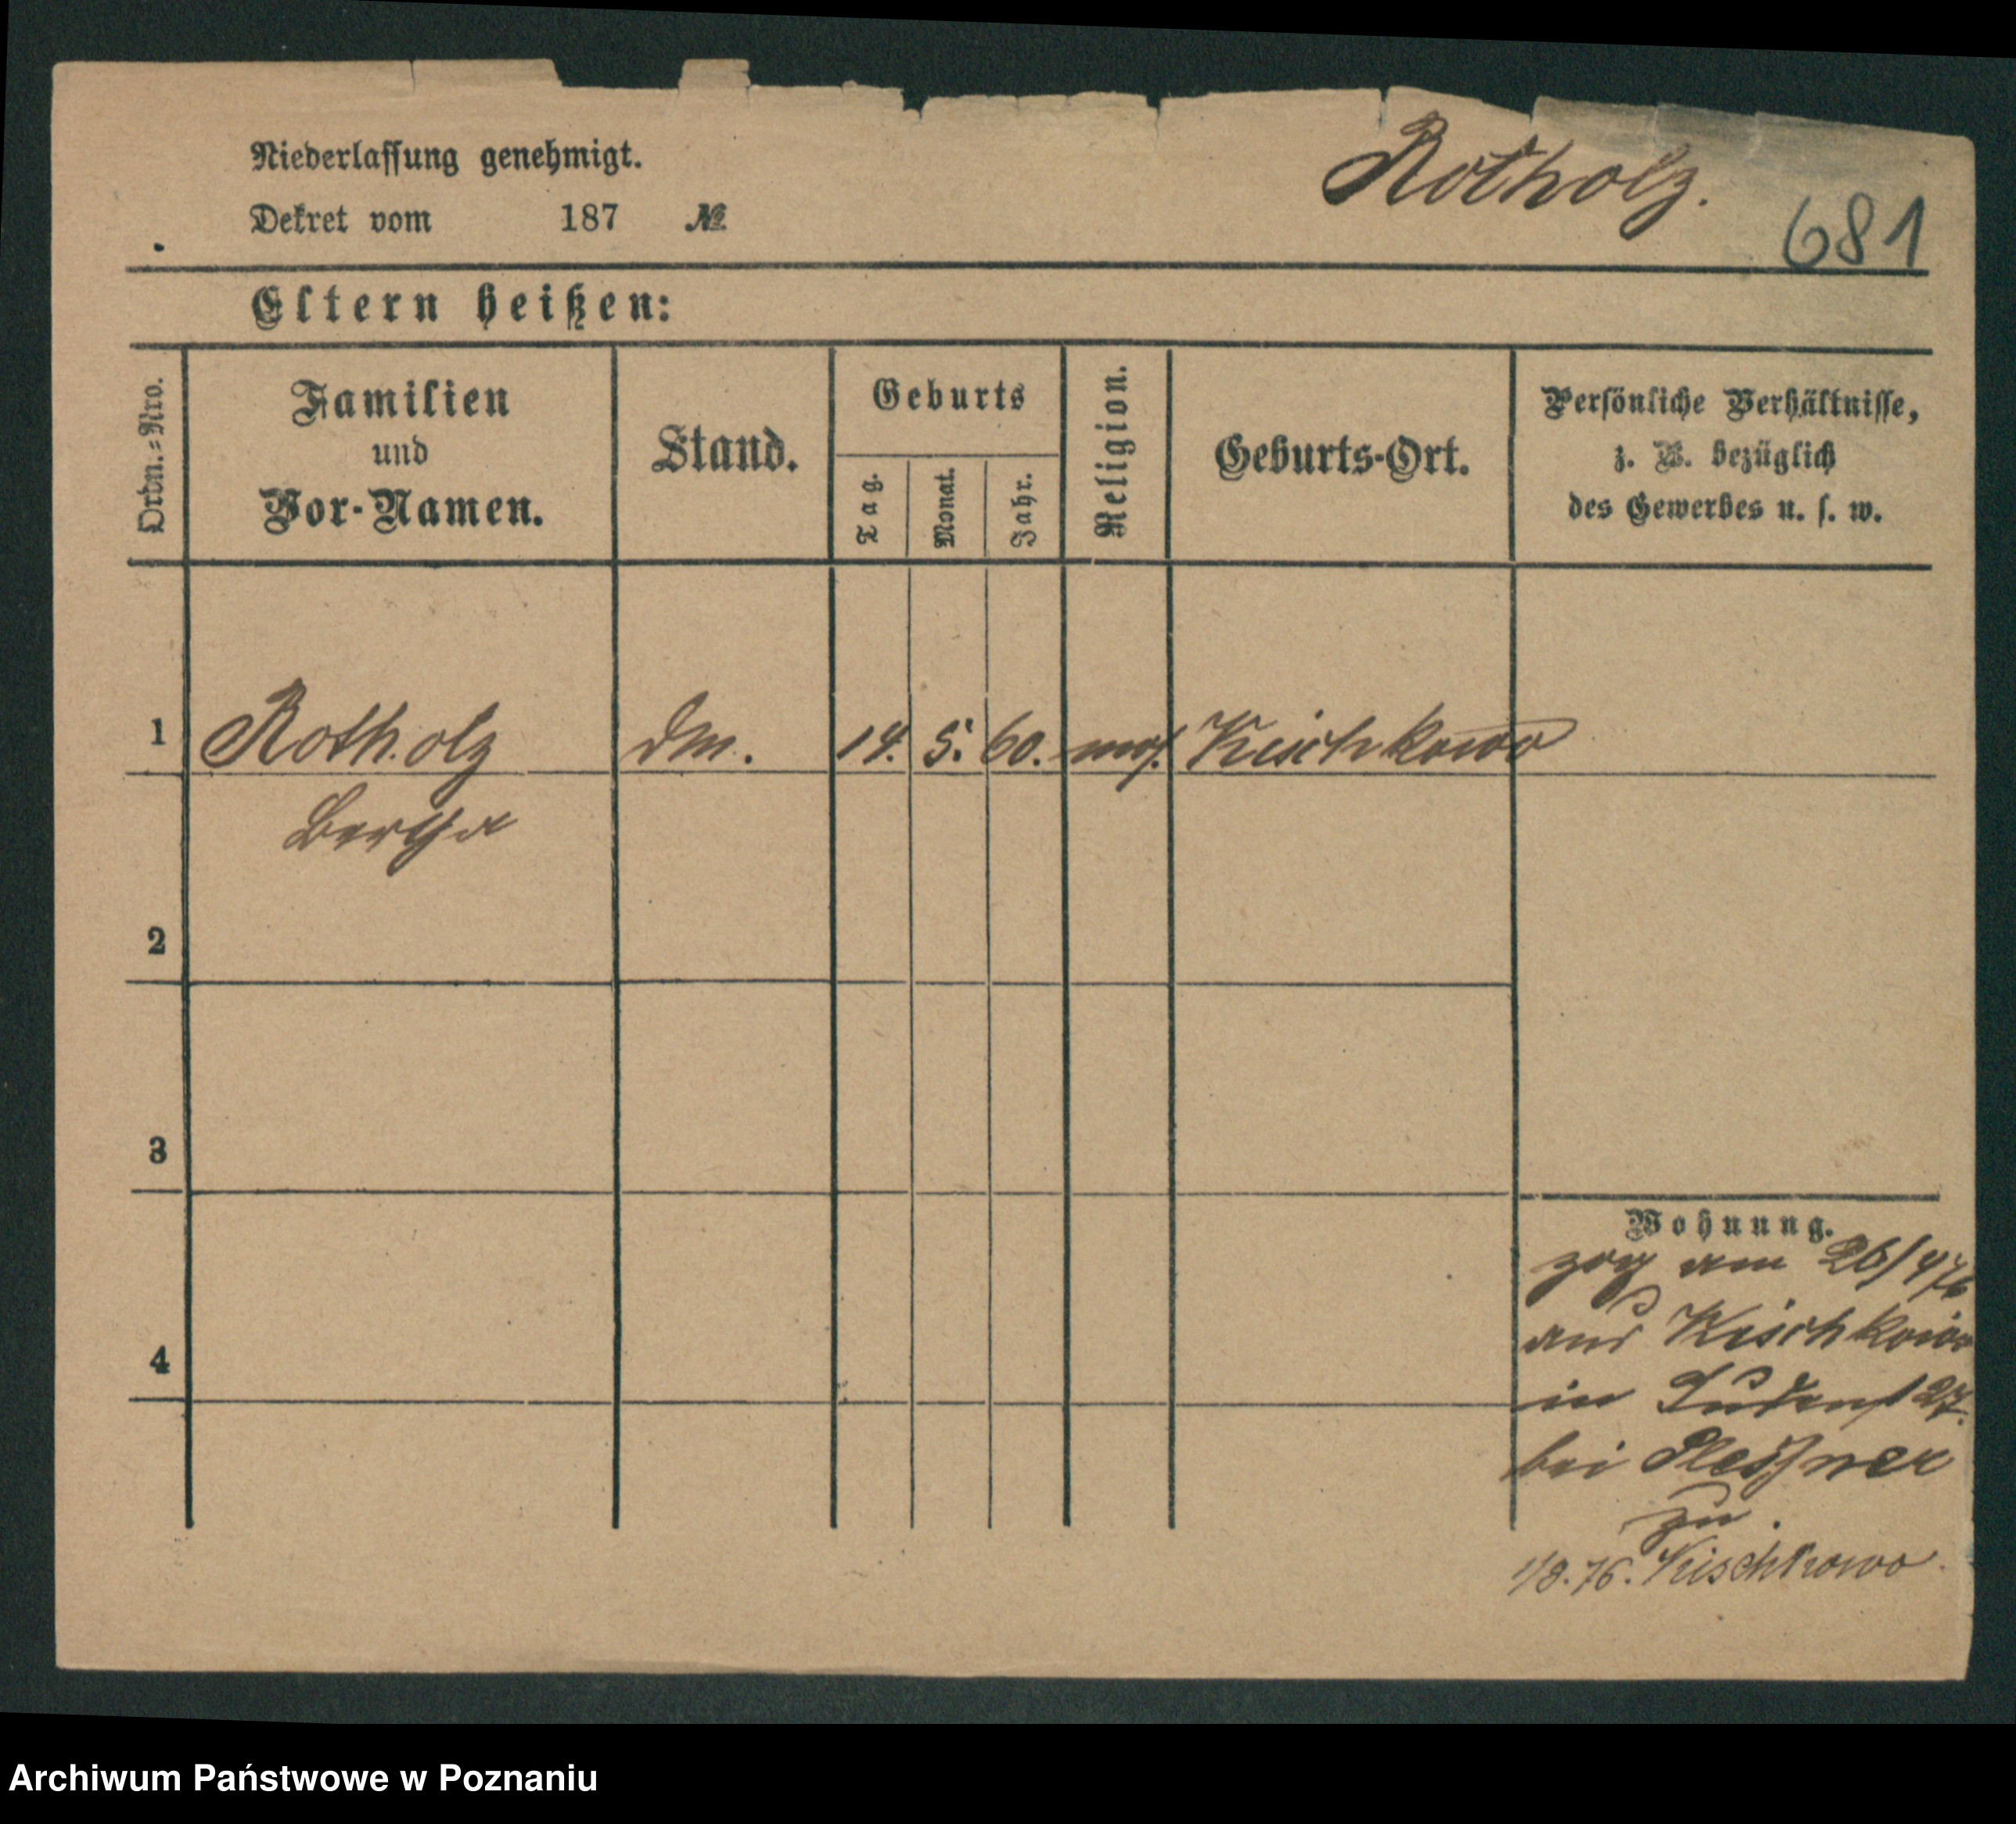 Niederlassung genehmigt.
Dekret vom 187 №
Rotholz.
681
Eltern heißen:
Ordn.=Nro.
Familien
und
Vor-Namen.
Stand.
Geburts
Tag.
Monat.
Jahr.
Religion.
Geburts-Ort.
Persönliche Verhältnisse,
z. B. bezüglich
des Gewerbes u. s. w.
1 Rotholz 14. 5. 60. mos. Kischkowo
Bertha
2
3
4
Wohnung.
zog am 26/4 76
aus Kischkowo
in Judenst 27.
bei Plessner
zu
1/8. 76. Kischkowo.
Archiwum Państwowe w Poznaniu